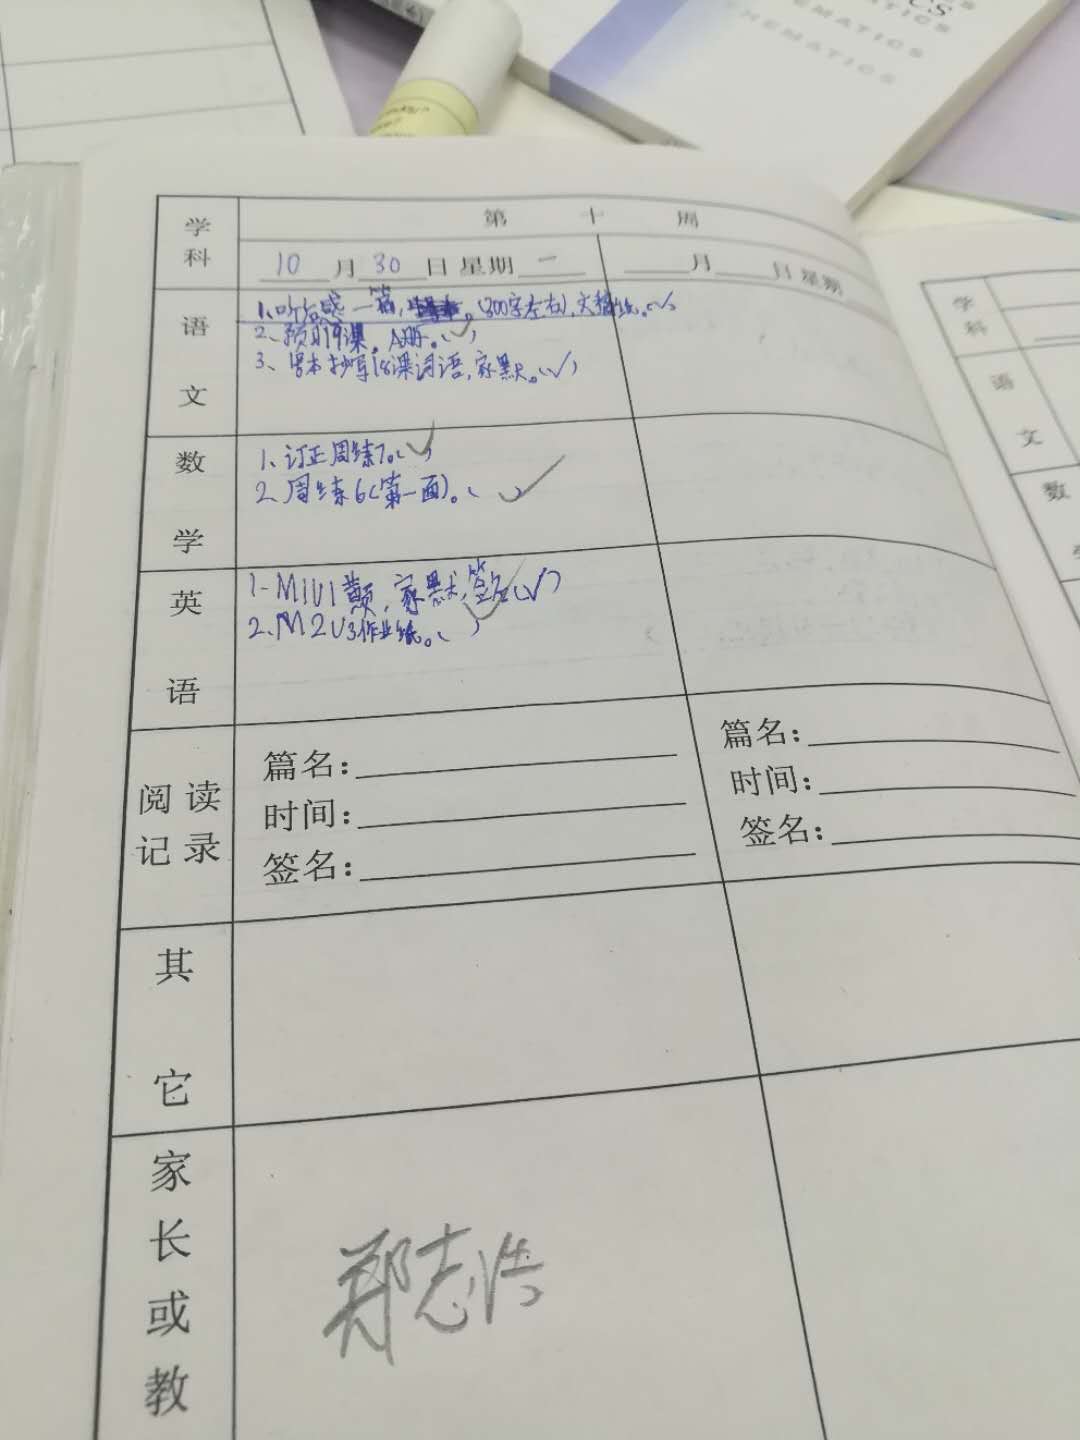 CS
MATICS
EMATICS
HEMATICS
学科
第 十 周
10月30日星期一
月 日 星期
语文
1、听后感一篇,。(300字左右),文稿纸。(√)
2、预习19课。A册。(√)
3、课本抄写18课词语,家默。(√)
数学
1、订正周练7。(√)
2、周练6(第一面)。(√)
英语
1-M1U1 ,家默,签名(√)
2、M2U3作业纸。(√)
阅读记录
篇名:
时间:
签名:
篇名:
时间:
签名:
其它
家长或教
郑志浩
学科
语文
数